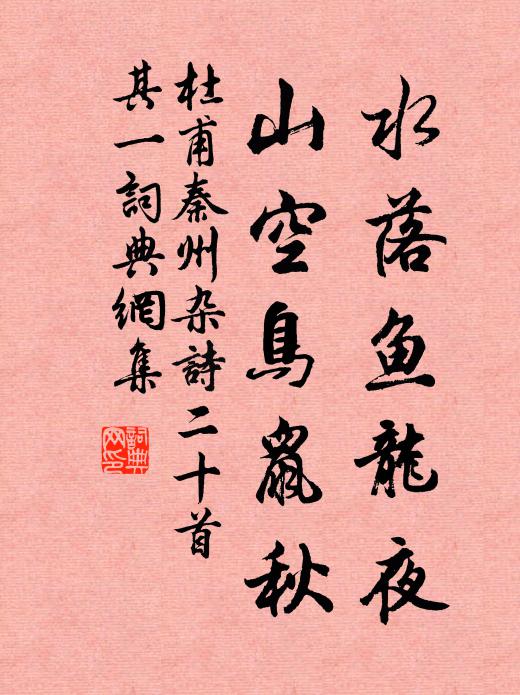 水落鱼龍夜
山空鳥鼠秋
杜甫秦州杂詩二十首
其一詞典網集
詞典
网印